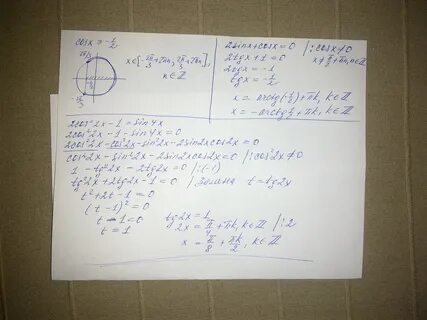 cosx ≥ -1/2
2π/3
x∈[-2π/3+2πn; 2π/3+2πn],
n∈ℤ
-2π/3
2sinx+cosx=0 |:cosx≠0
x≠π/2+πn, n∈ℤ
2tgx+1=0
2tgx=-1
tgx=-1/2
x=arctg(-1/2)+πk, k∈ℤ
x=-arctg1/2+πk, k∈ℤ
2cos²2x-1=sin4x
2cos²2x-1-sin4x=0
2cos²2x-cos²2x-sin²2x-2sin2xcos2x=0
cos²2x-sin²2x-2sin2xcos2x=0 |:cos²2x≠0
1-tg²2x-2tg2x=0 |:(-1)
tg²2x+2tg2x-1=0 | Замена t=tg2x
t²+2t-1=0
(t-1)²=0
t-1=0
t=1
tg2x=1
2x=π/4+πk, k∈ℤ |:2
x=π/8+πk/2, k∈ℤ